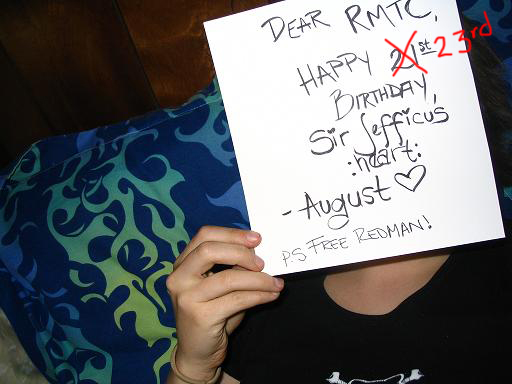 Dear RMTC,
Happy 21st 23rd
Birthday,
Sir Jefficus
:heart:
- August ♡
PS Free Redman!